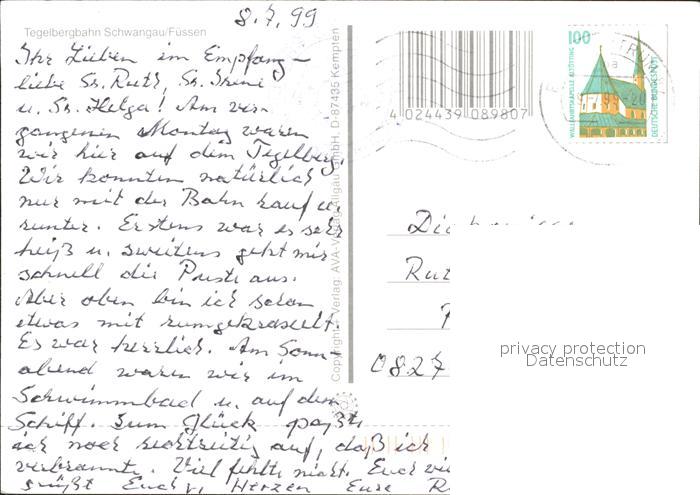 8.7.99
Tegelbergbahn Schwangau/Füssen
Ihr Lieben im Empfang –
liebe Sr. Ruth, Sr. Irene
u. Sr. Helga! Am ver-
gangenen Montag waren
wir hier auf dem Tegelberg.
Wir konnten natürlich
nur mit der Bahn rauf u.
runter. Erstens war es sehr
heiß u. zweitens geht mir
schnell die Puste aus.
Aber oben bin ich schon
etwas mit rumgekraxelt.
Es war herrlich. Am Sonn-
abend waren wir im
Schwimmbad u. auf dem
Schiff. Zum Glück paßte
ich noch rechtzeitig auf, daß ich
verbrannte. Viel fehlte nicht. Euch
grüßt Euch v. Herzen Eure R
Copyright + Verlag: AVA-Verlag Allgäu GmbH, D-87435 Kempten
4 024439 089807
100
WALLFAHRTSKAPELLE ALTÖTTING
DEUTSCHE BUNDESPOST
Rut
0827
privacy protection
Datenschutz